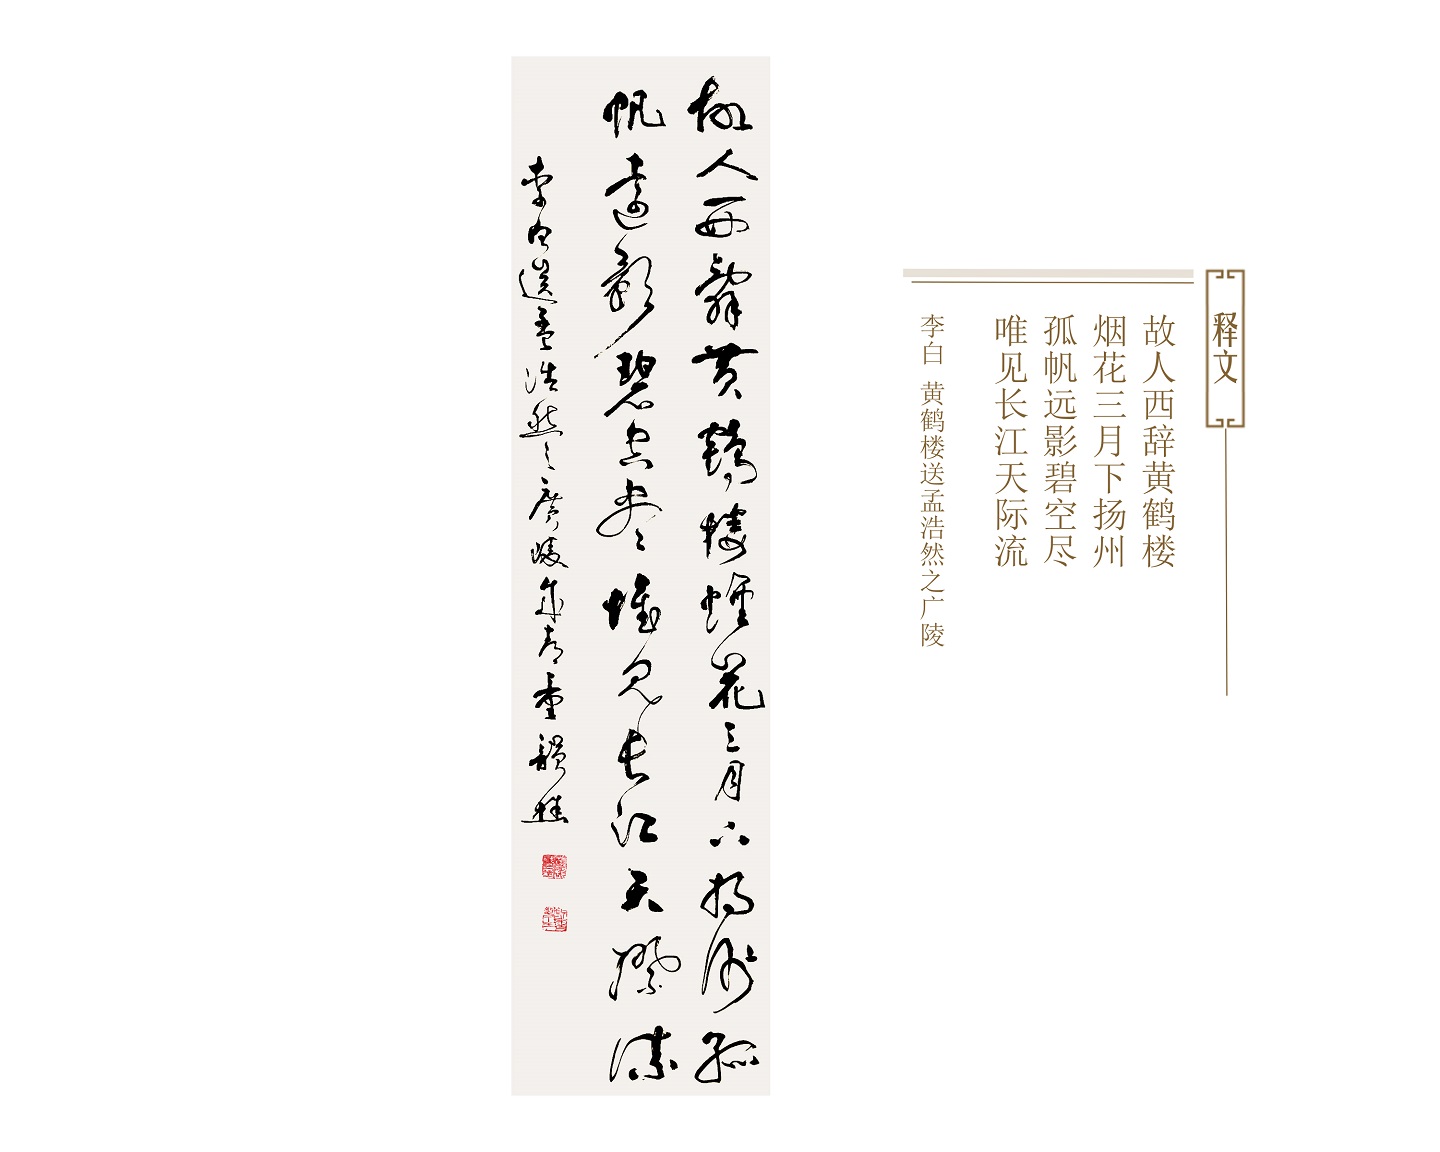 释文
故人西辞黄鹤楼
烟花三月下扬州
孤帆远影碧空尽
唯见长江天际流
李白 黄鹤楼送孟浩然之广陵
故人西辭黄鶴樓煙花三月下揚州孤
帆遠影碧空盡惟見長江天際流
李白送孟浩然之廣陵